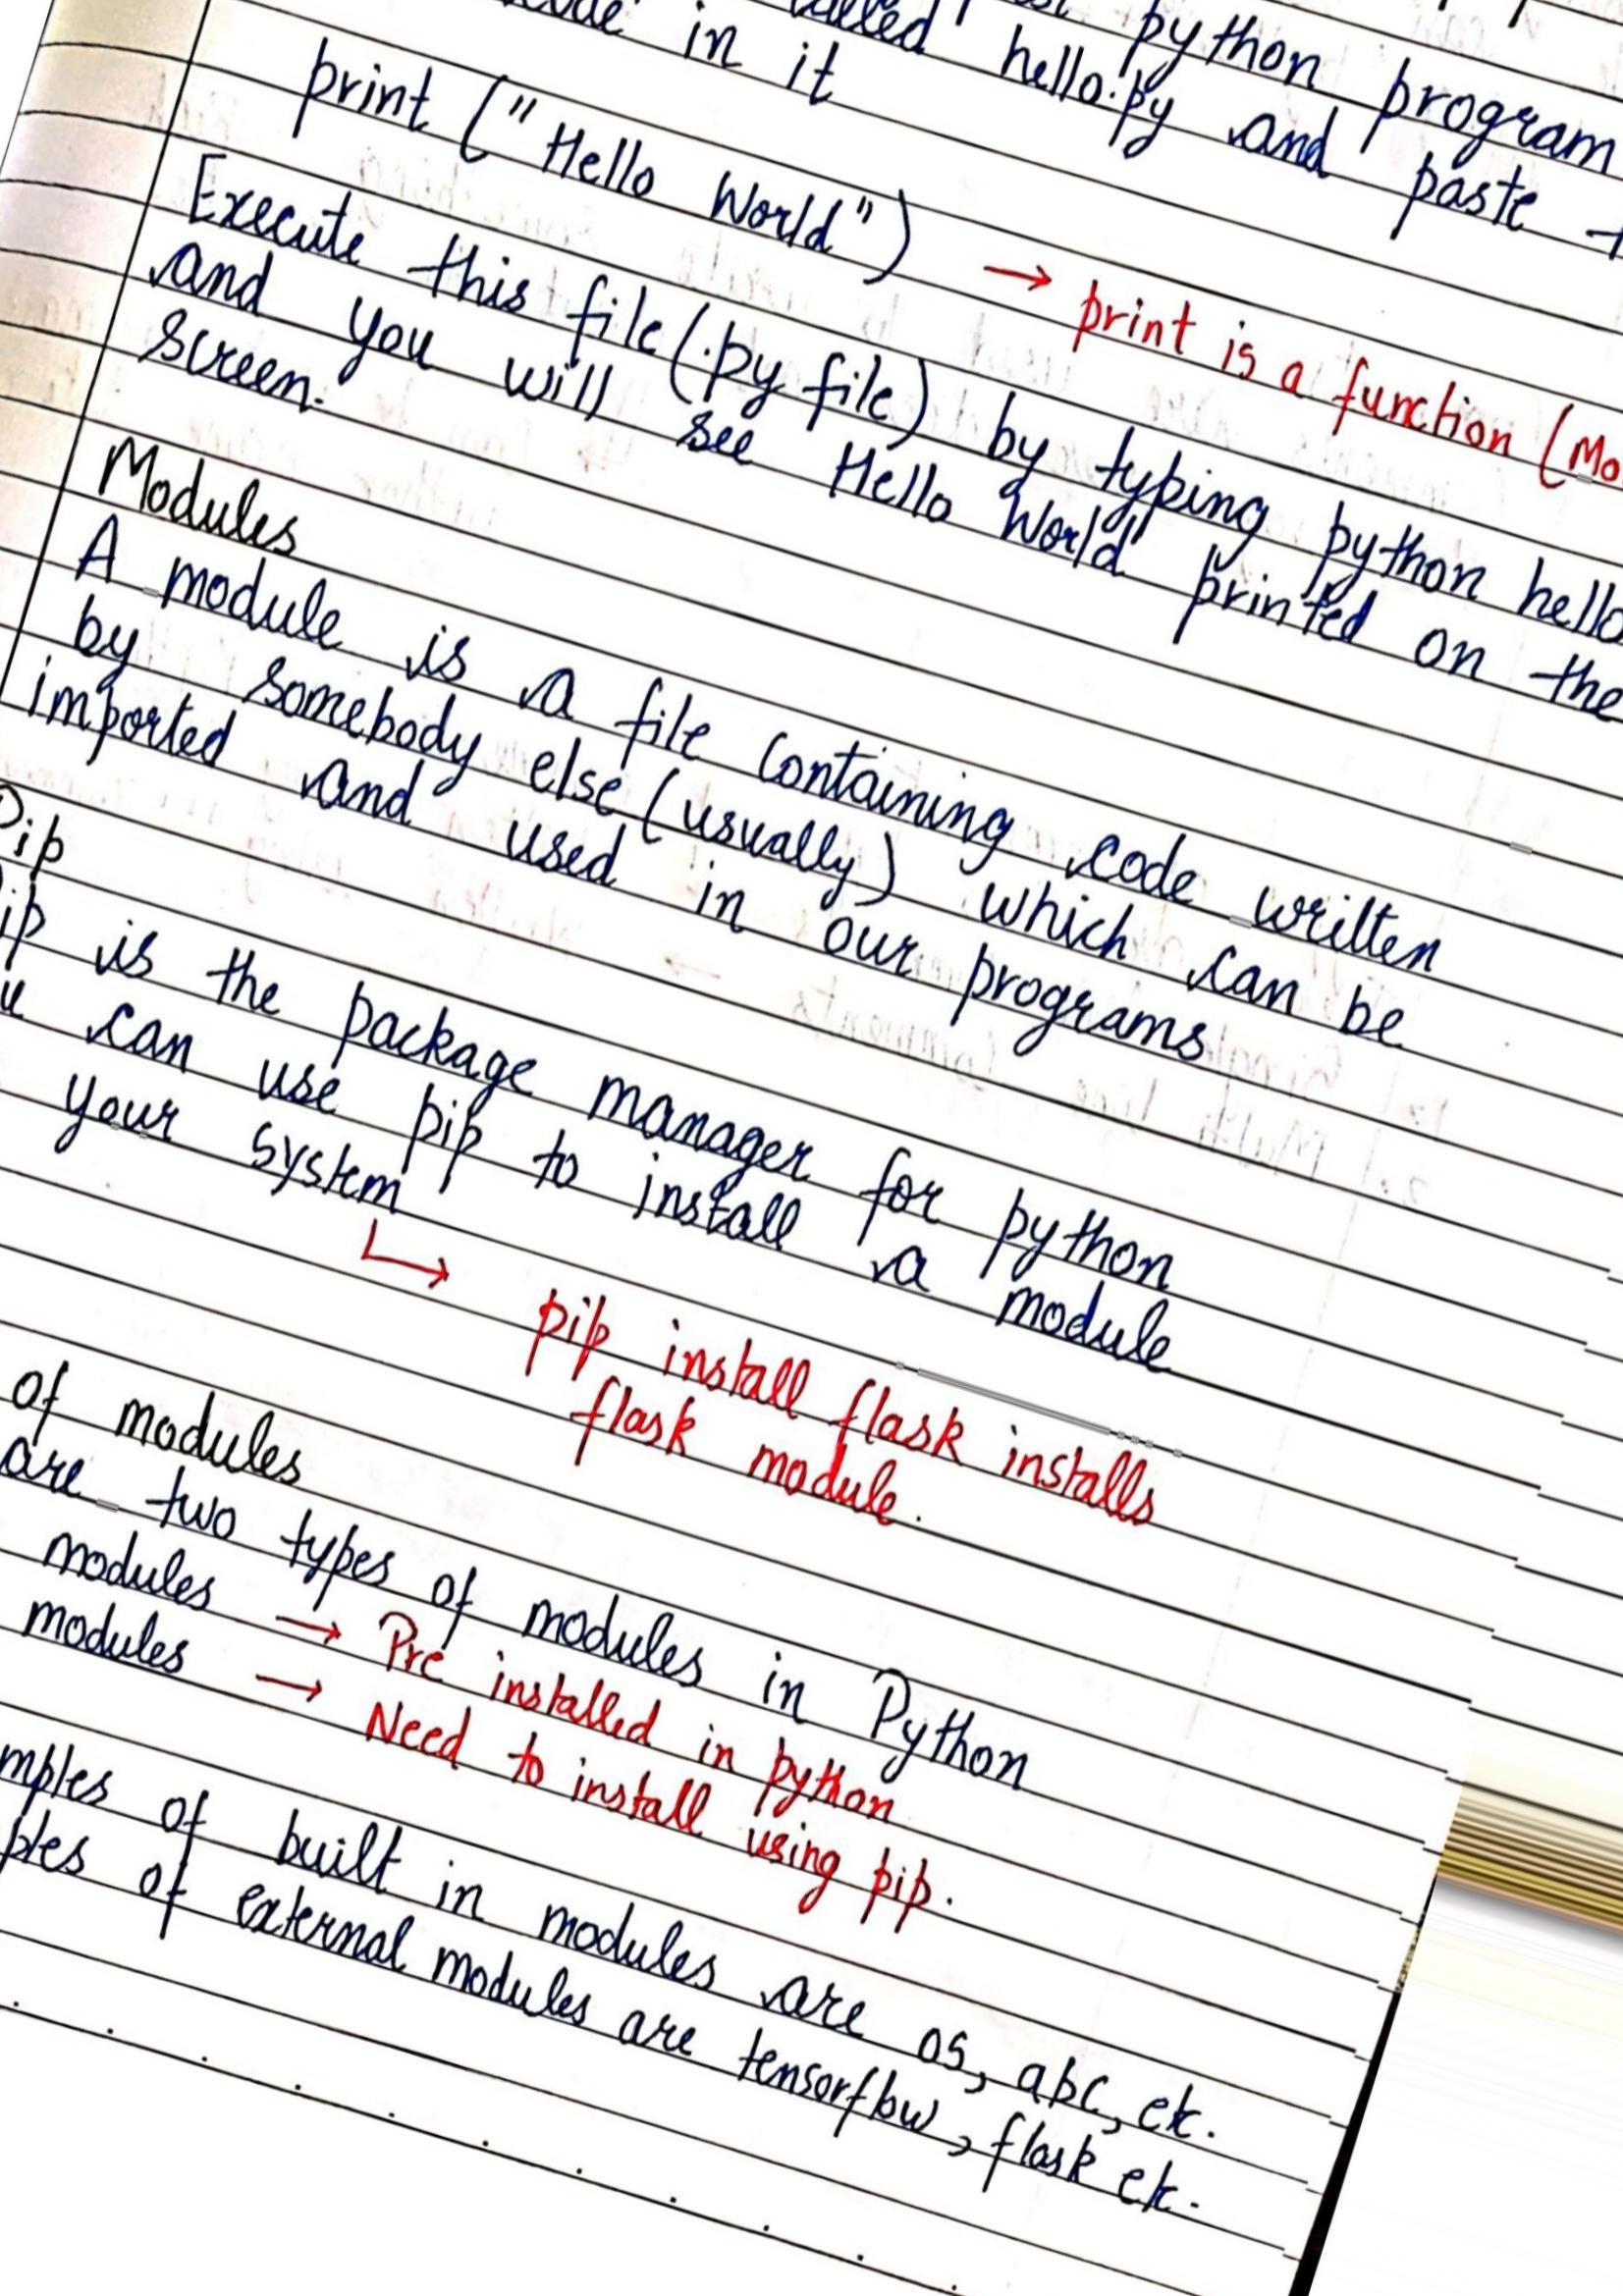 python program
called hello.py and paste
in it
print ("Hello World") → print is a function (Mo
Execute this file (.py file) by typing python hello
and you will see Hello World" printed on the
screen.
Modules
A module is a file containing code written
by somebody else (usually) which can be
imported and used in our programs
Pip
ip is the package manager for python
u can use pip to install a module
your system
↳ pip install flask installs
flask module.
of modules
are two types of modules in Python
modules → Pre installed in python
modules → Need to install using pip.
mples of built in modules are os, abc, etc.
ples of external modules are tensorflow, flask etc.